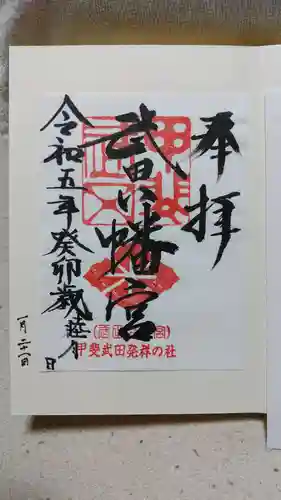 奉拝
武田八幡宮
令和五年癸卯歳睦月 日
甲斐武田発祥の社
一月二一日